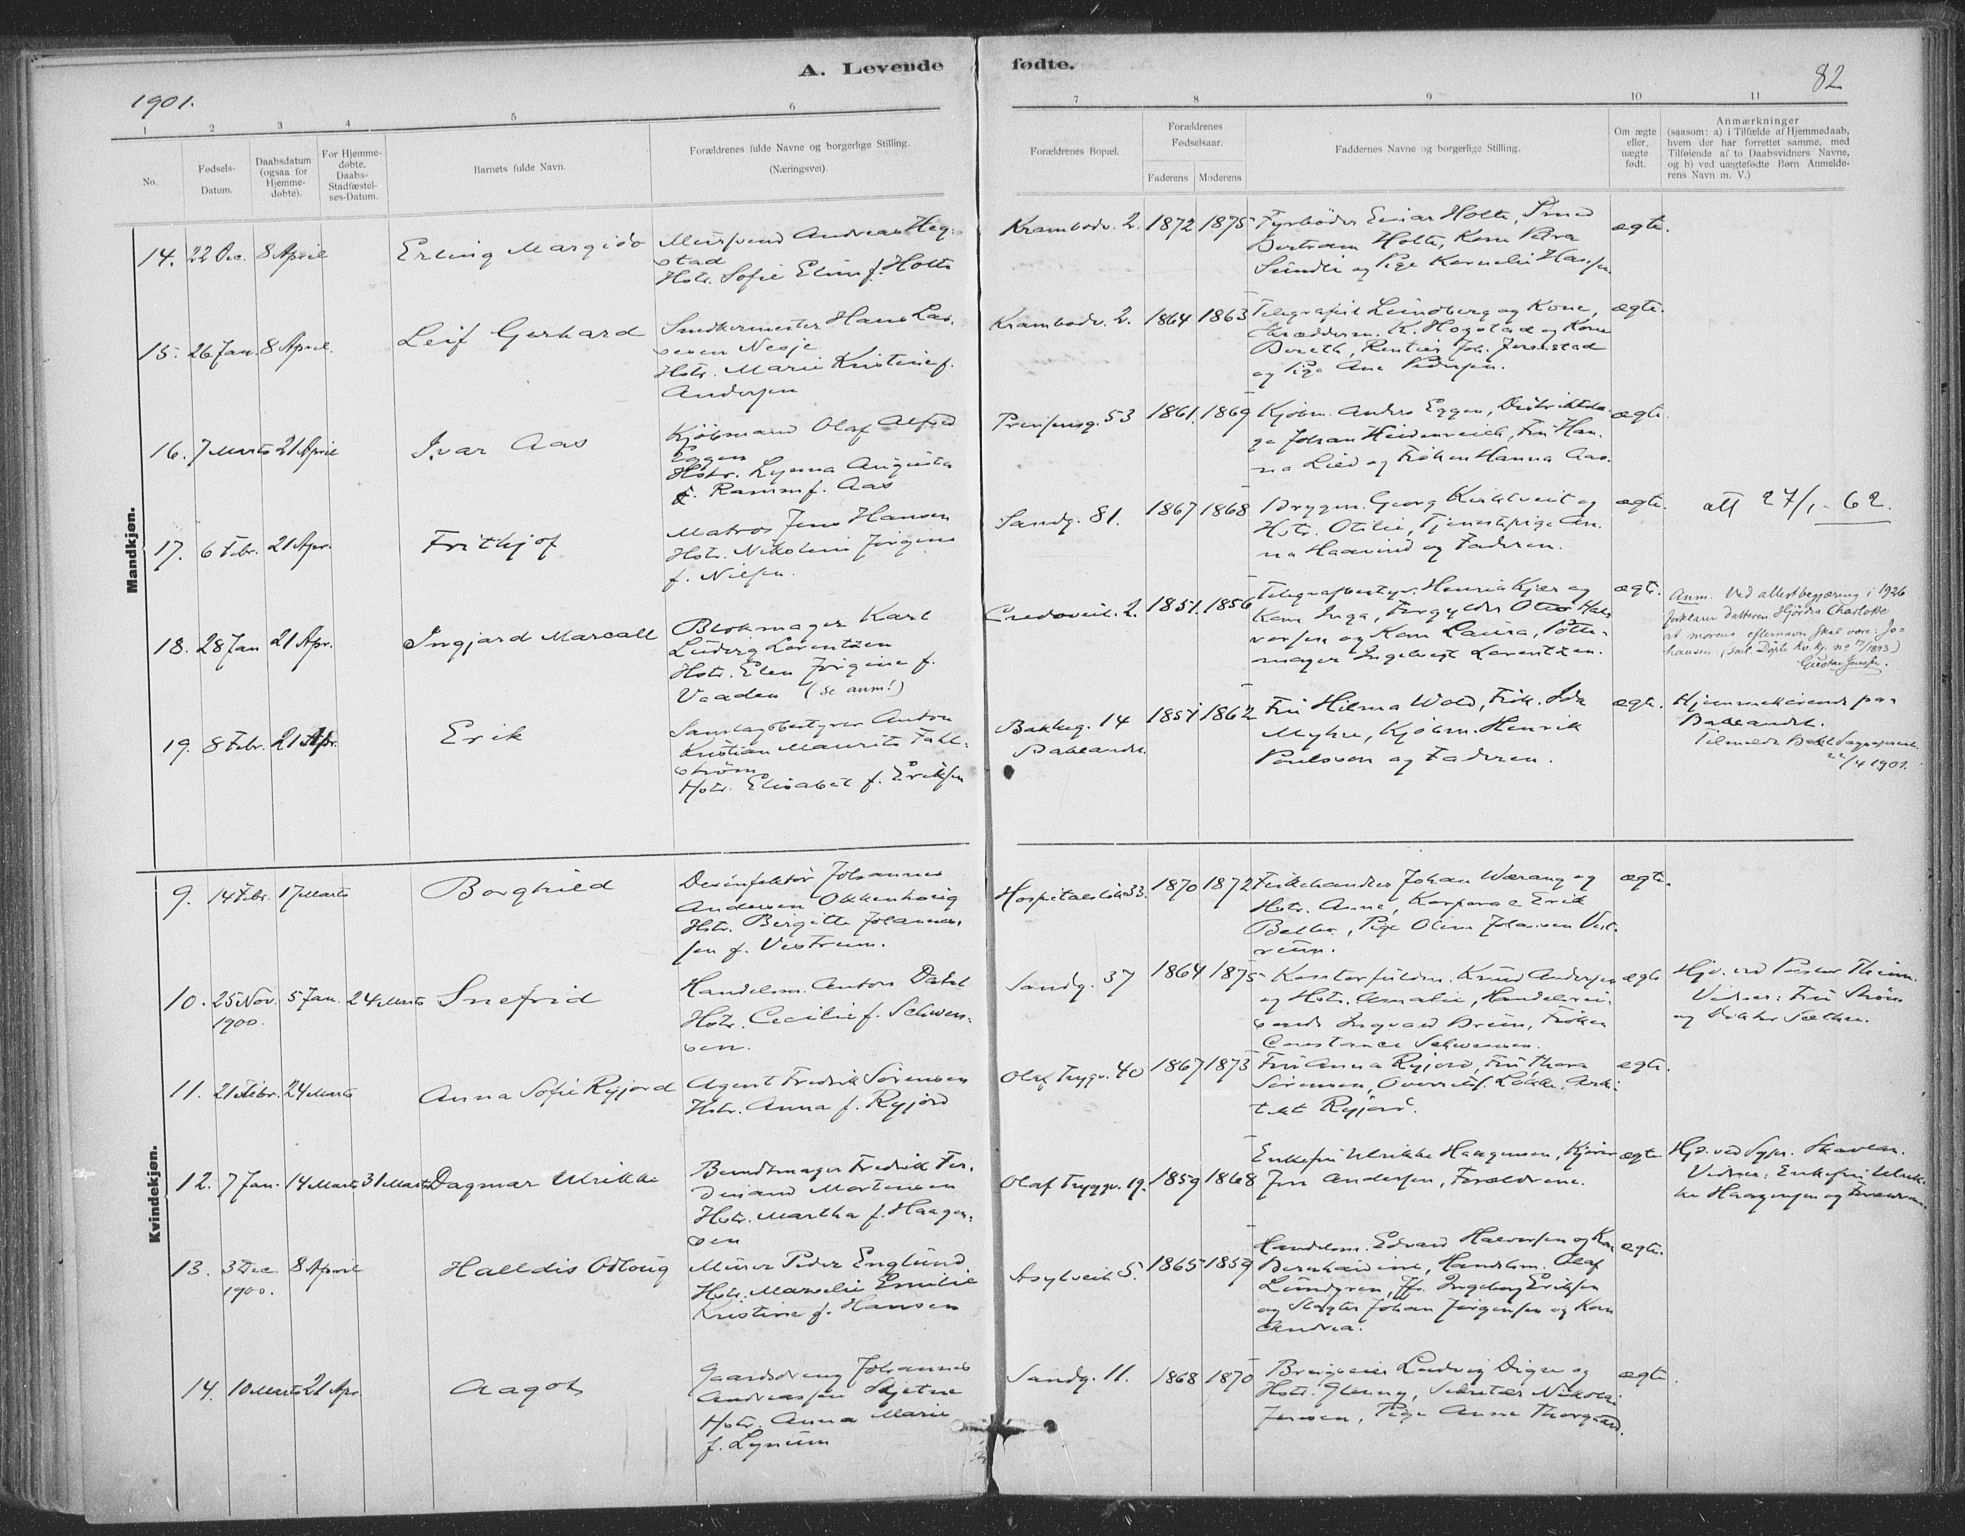 1901.
A. Levende fødte.
82
1 2 3 4 5 6 7 8 9 10 11
No.
Fødsels-Datum.
Daabsdatum (ogsaa for Hjemmedøbte).
For Hjemmedøbte, Daabs-Stadfæstelses-Datum.
Barnets fulde Navn.
Forældrenes fulde Navne og borgerlige Stilling.
(Næringsvei).
Forældrenes Bopæl.
Forældrenes Fødselsaar.
Faderens Moderens
Faddernes Navne og borgerlige Stilling.
Om ægte eller uægte født.
Anmærkninger
(saasom: a) i Tilfælde af Hjemmedaab, hvem der har forrettet samme, med Tilføiende af to Daabsvidners Navne, og b) ved uægtefødte Børn Anmelderens Navn m. V.)
Mandkjøn.
14. 22 Dec. 8 April
Erling Margido
Andreas Hegstad
Hstr. Sofie Elin f. Holte
Krambodv. 2. 1872 1875
Fyrbøder Einar Holte, Smed
Bertram Holte, Kone Petra
og Pige Kornelie Hansen
ægte.
15. 26 Jan. 8 April.
Leif Gerhard
Snedkermester Hans Lassesen Nesje
Hstr. Marie Kristine f.
Andersen
Krambodv. 2. 1864 1863
Telegrafist Lundberg og Kone,
Skrædderm. K. Hogstad og Kone
Bereth, Rentier Joh.
og Pige Ane Pedersen.
ægte.
16. 7 Marts 21 April
Ivar Aas
Kjøbmand Olaf Alfred
Eggen
Hstr. Augusta
Ramm f. Aas
Prinsensg. 53 1861. 1869
Kjøbm. Anders Eggen, Distriktslæge Johan Heidenreich, Fru Hanna Lied og Frøken Hanna Aas.
ægte.
17. 6 Febr. 21 Apr.
Frithjof
Matros Jens Hansen
Hstr. Nikoline Jørgine
f. Nielsen.
Sandg. 81. 1867 1868
Bryggm. Georg og
Hstr. Otilie, Tjenestpige Anna Haavind og Faderen.
ægte.
att 27/1 - 62.
18. 28 Jan 21 Apr.
Ingjard Marcall
Blokmager Karl
Ludvig Lorentzen
Hstr. Elen Jørgine f.
Vaaden (se anm!)
Credoveit. 2. 1851. 1856
Telegrafbestyr. Henrik Kjær og
Kone Inga, Forgylder Otto Halvorsen og Kone Laura, Pottemager Ingebrigt Lorentzen.
ægte.
Anm. Ved attestbegjæring i 1926
forklarer datteren Hjørdis Charlotte
at morens efternavn skal være: Johansen.
19. 8 Febr. 21 Apr.
Erik
Samlagsbestyrer Anton
Kristian Maurits Fahlstrøm
Hstr. Elisabet f. Eriksen
Bakkeg. 14
Baklandet
1857 1862
Fru Hilma Wold, Frk. Ida
Myhre, Kjøbm. Henrik
Poulsson og Faderen.
ægte.
Hjemmehørende paa
Baklandet.
Tilmeldt Bakl.
22/4 1901.
Kvindekjøn.
9. 14 Febr. 17 Marts
Borghild
Desinfektør Johannes
Andersen Okkenhaug
Hstr. Birgitte Johannessen f. Vestrum.
Hospitalsløk. 33. 1870 1872
Fiskehandler Johan Wærang og
Hstr. Anne, Korporal Erik
Balbo, Pige Oline Johansen Vestrum.
ægte.
10. 25 Nov. 1900. 5 Jan. 24 Marts
Snefrid
Handelsm. Anton Dahl
Hstr. Cecilie f. Schwensen.
Sandg. 37 1864 1875
Knud Andersen
og Hstr. Amalie, Handelsreisende Ingvald Bruun, Frøken
Constance Schwensen.
ægte
Hjd. ved Pastor Theim.
Vidner: Fru Strøm
og Doktor Sæther.
11. 21 Febr. 24 Marts
Anna Sofie Ryjord
Agent Fredrik Sørensen
Hstr. Anna f. Ryjord
Olaf Trygv. 40 1867 1873
Fru Anna Ryjord, Fru Thora
Sørensen, Løkke, Arkitekt Ryjord.
ægte.
12. 7 Jan. 14 Marts 31 Marts
Dagmar Ulrikke
Bundtmager Fredrik Ferdinand Mortensen
Hstr. Martha f. Haagensen
Olaf Tryggv. 19. 1859 1868
Enkefru Ulrikke Haagensen,
Jens Andersen, Forældrene.
ægte.
Hjd. ved Sygepr. Skaven.
Vidner: Enkefru Ulrikke Haagensen og Forældrene.
13. 3 Dec. 1900. 8 April
Halldis Odlaug
Murer Peder Englund.
Hstr. Marselie Emilie
Kristine f. Hansen
Asylveit. 5. 1865 1859
Handelsm. Edvard Halvorsen og Kone
Bernhardine, Handelsm. Olaf
Lundgren, Jfr. Ingeborg Eriksen
og Slagter Johan Jørgensen og Kone
Andrea.
ægte.
14. 10 Marts 21 Apr.
Aagot
Gaardsdreng Johannes
Andreassen Skjetne
Hstr. Anna Marie
f. Lynum
Sandg. 11. 1868 1870
Ludvig Digre og
Hstr. Sekretær Nikolai
Jensen, Pige Anne Thorgaard.
ægte.